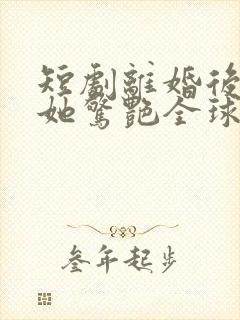 短劇離婚後
她驚艷全球
叁年起步